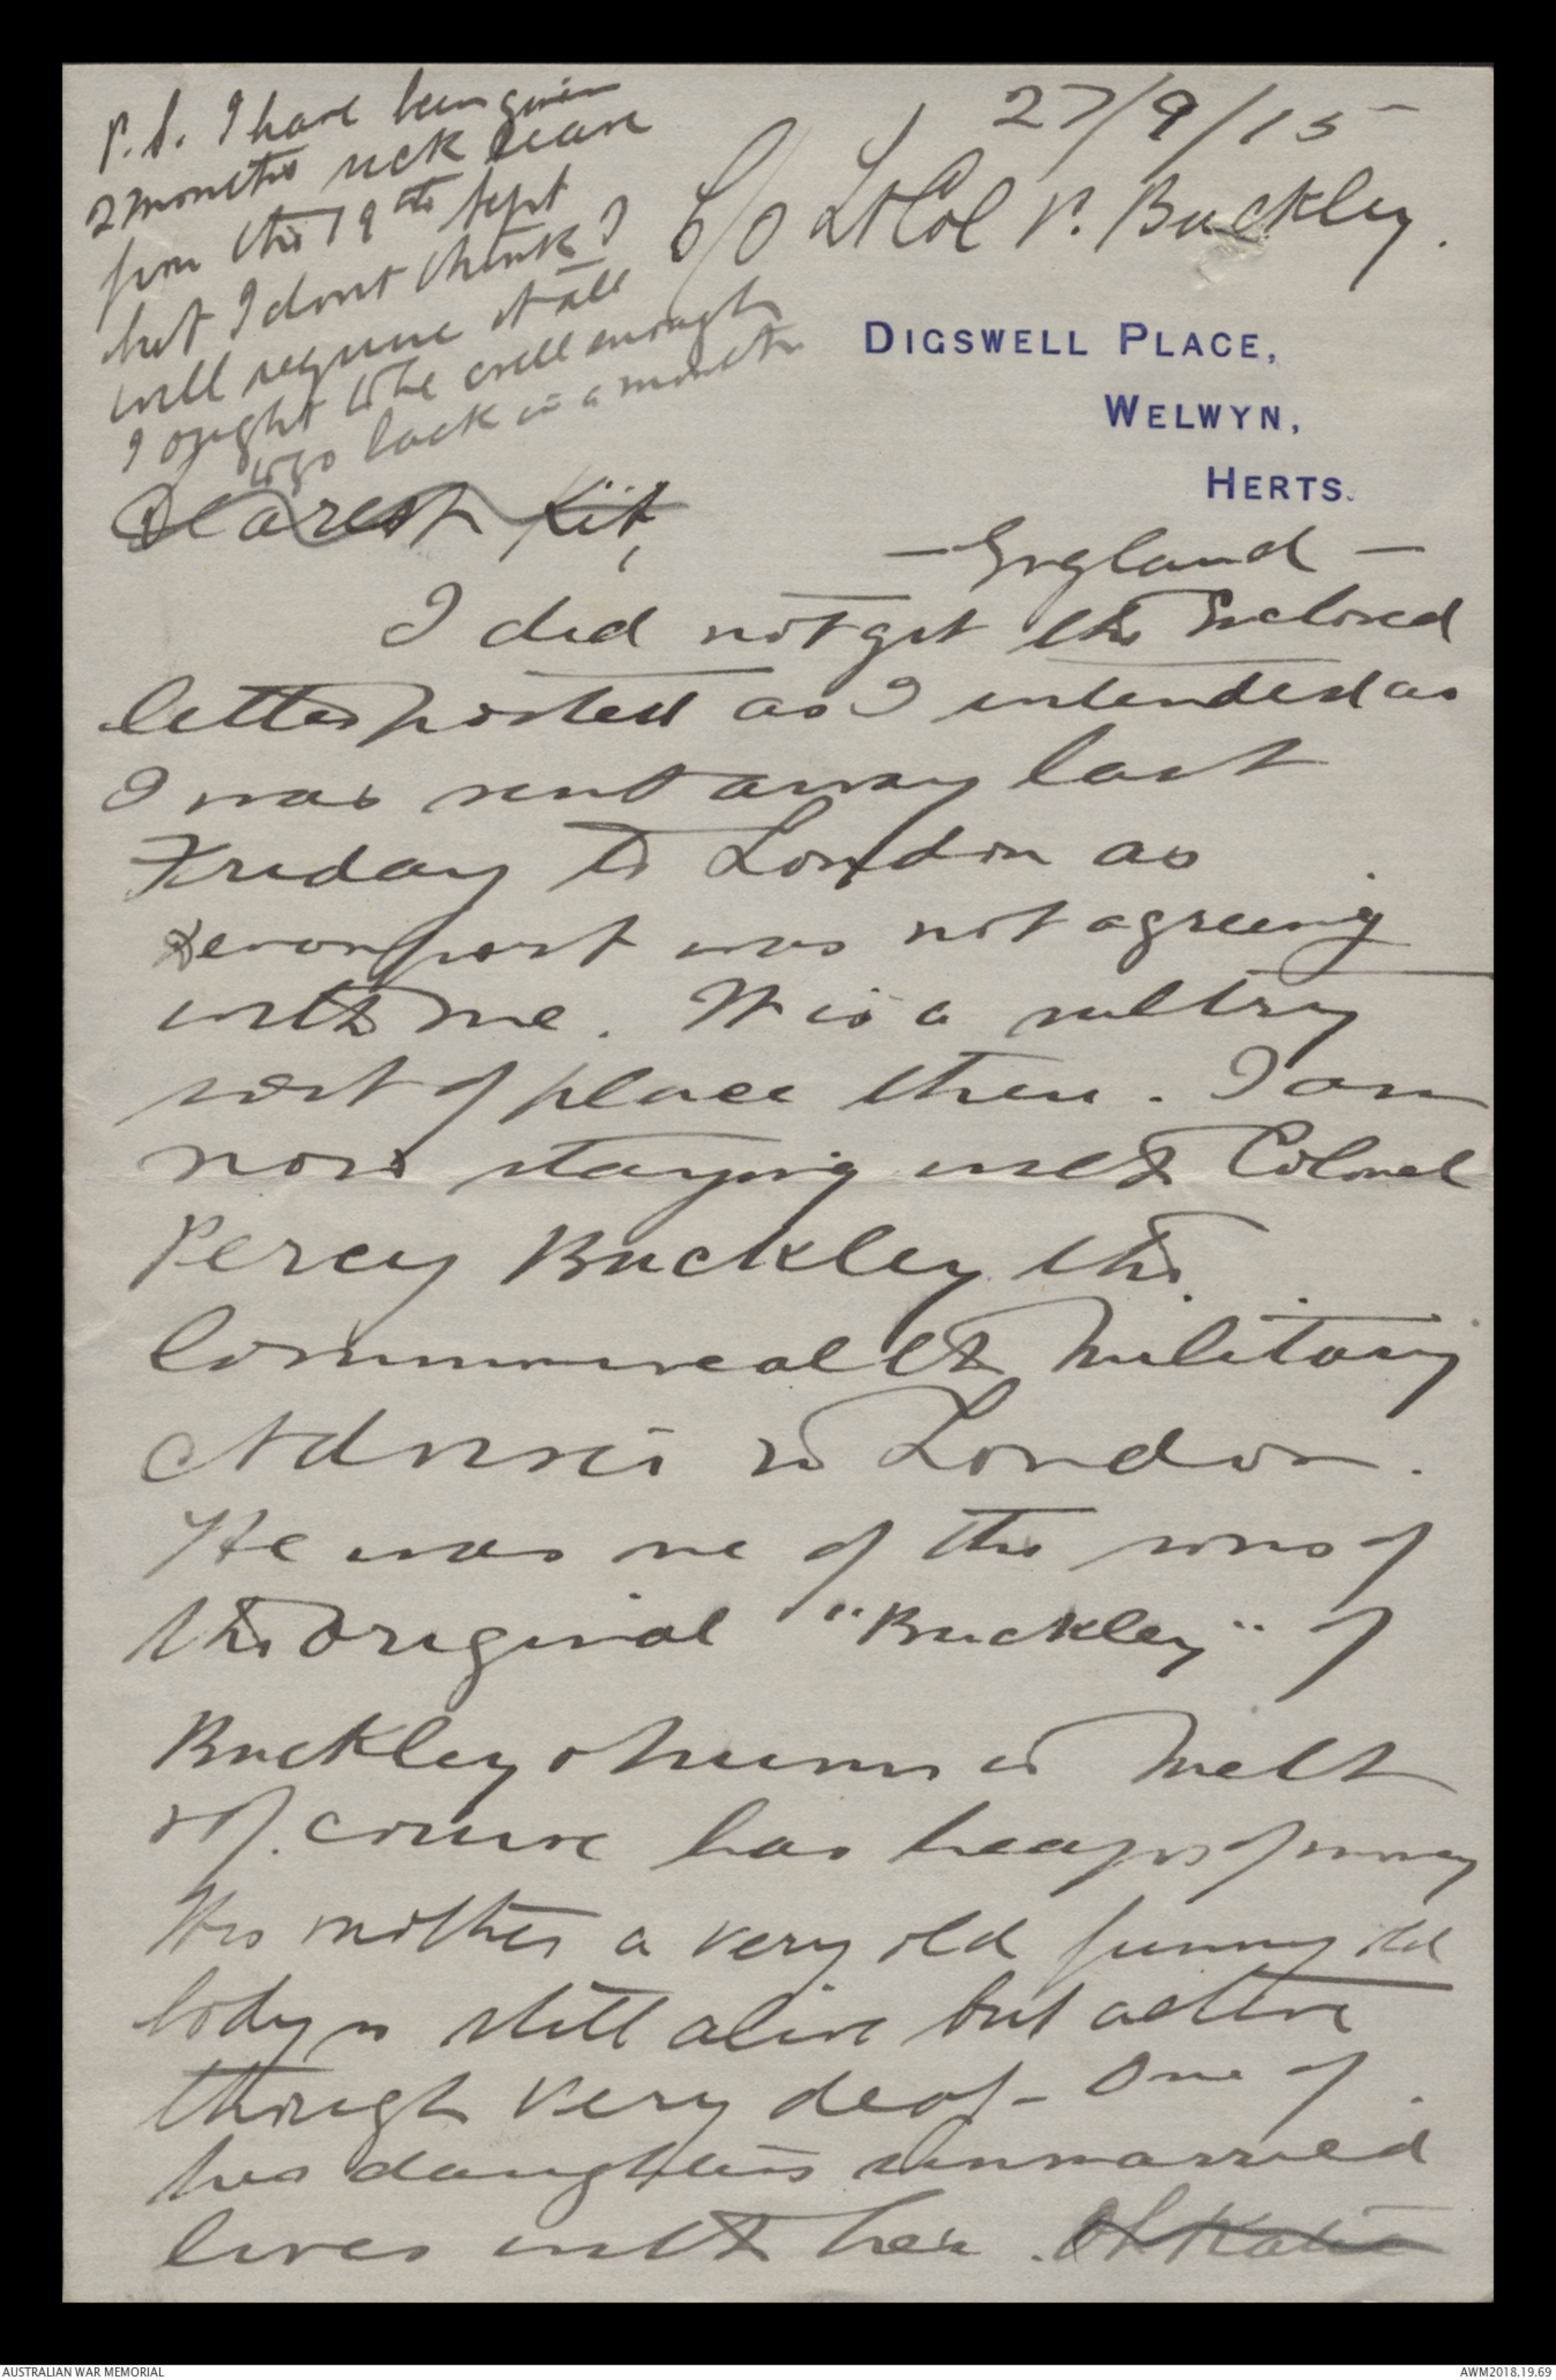 P.S. I have been given
2 months sick leave
from the 19th Sept
but I dont think I
will require it all
I ought to be well enough
to go back in a month
27/9/15
C/o Lt Col P. Buckley.
DIGSWELL PLACE,
WELWYN,
HERTS.
- England -
Dearest Kit,
I did not get the enclosed
letter posted as I intended as
I was sent away last
Friday to London as
Devonport was not agreeing
with me. It is a sultry
sort of place there. I am
now staying with Colonel
Percy Buckley the
Commonwealth Military
Adviser in London.
He was one of the sons of
the original "Buckley" of
Buckley & Nunn in Melb
& of course has heaps of money
His mother a very old funny old
body is still alive but active
though very deaf - One of
her daughters unmarried
lives with her. Oh Katie
AUSTRALIAN WAR MEMORIAL
AWM2018.19.69